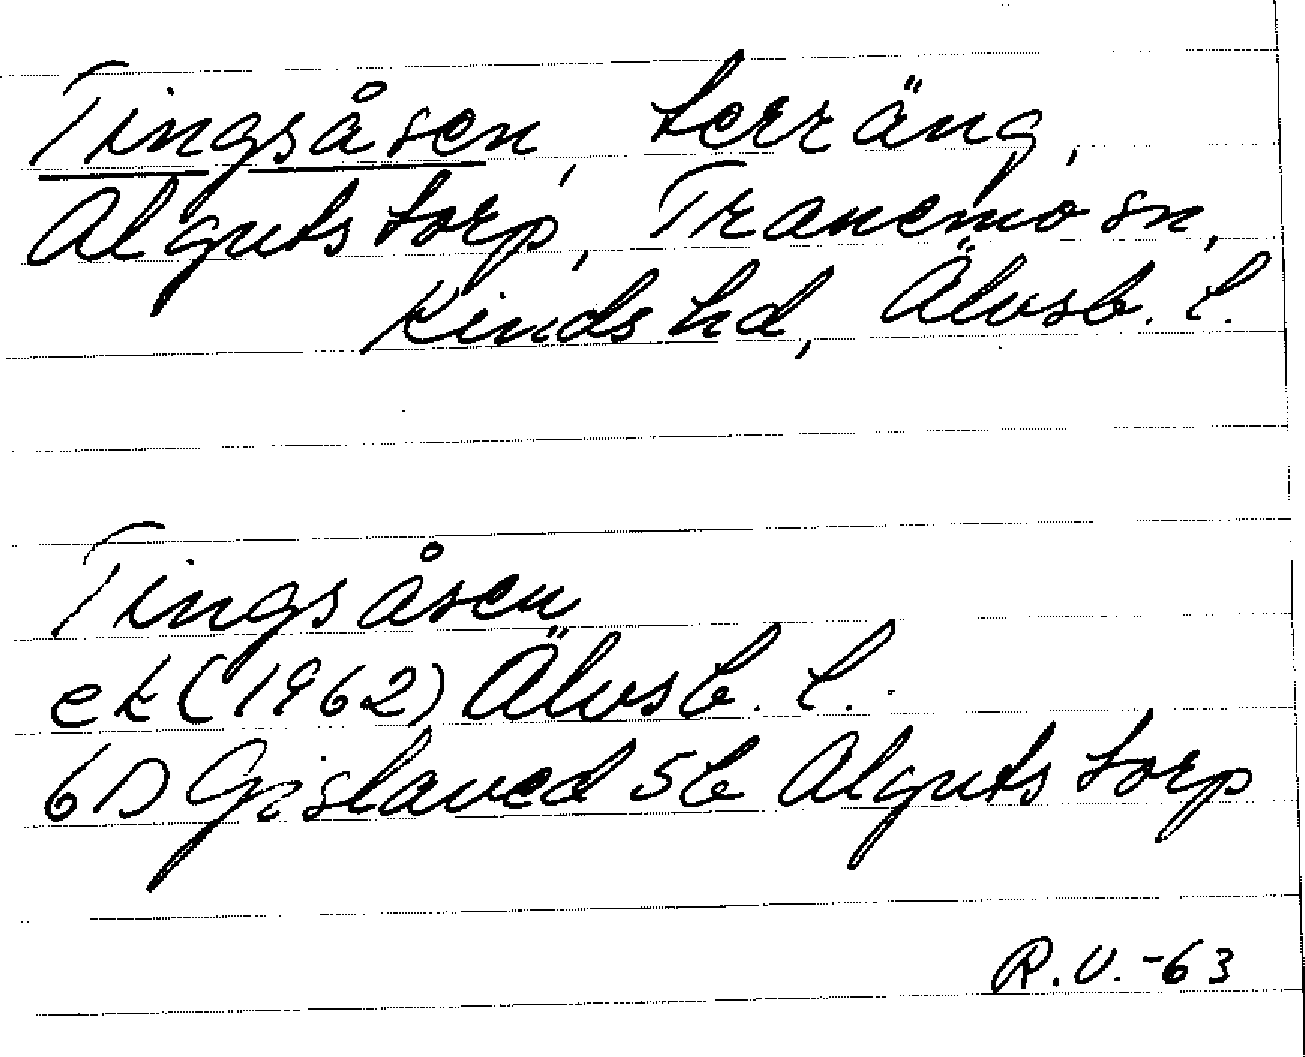 Tingsåsen, terräng,
Algutstorp, Tranemo sn,
Kinds hd, Älvsb. l.
Tingsåsen
ek (1962) Älvsb. l.
6D Gislaved 5b Algutstorp
R.V.-63